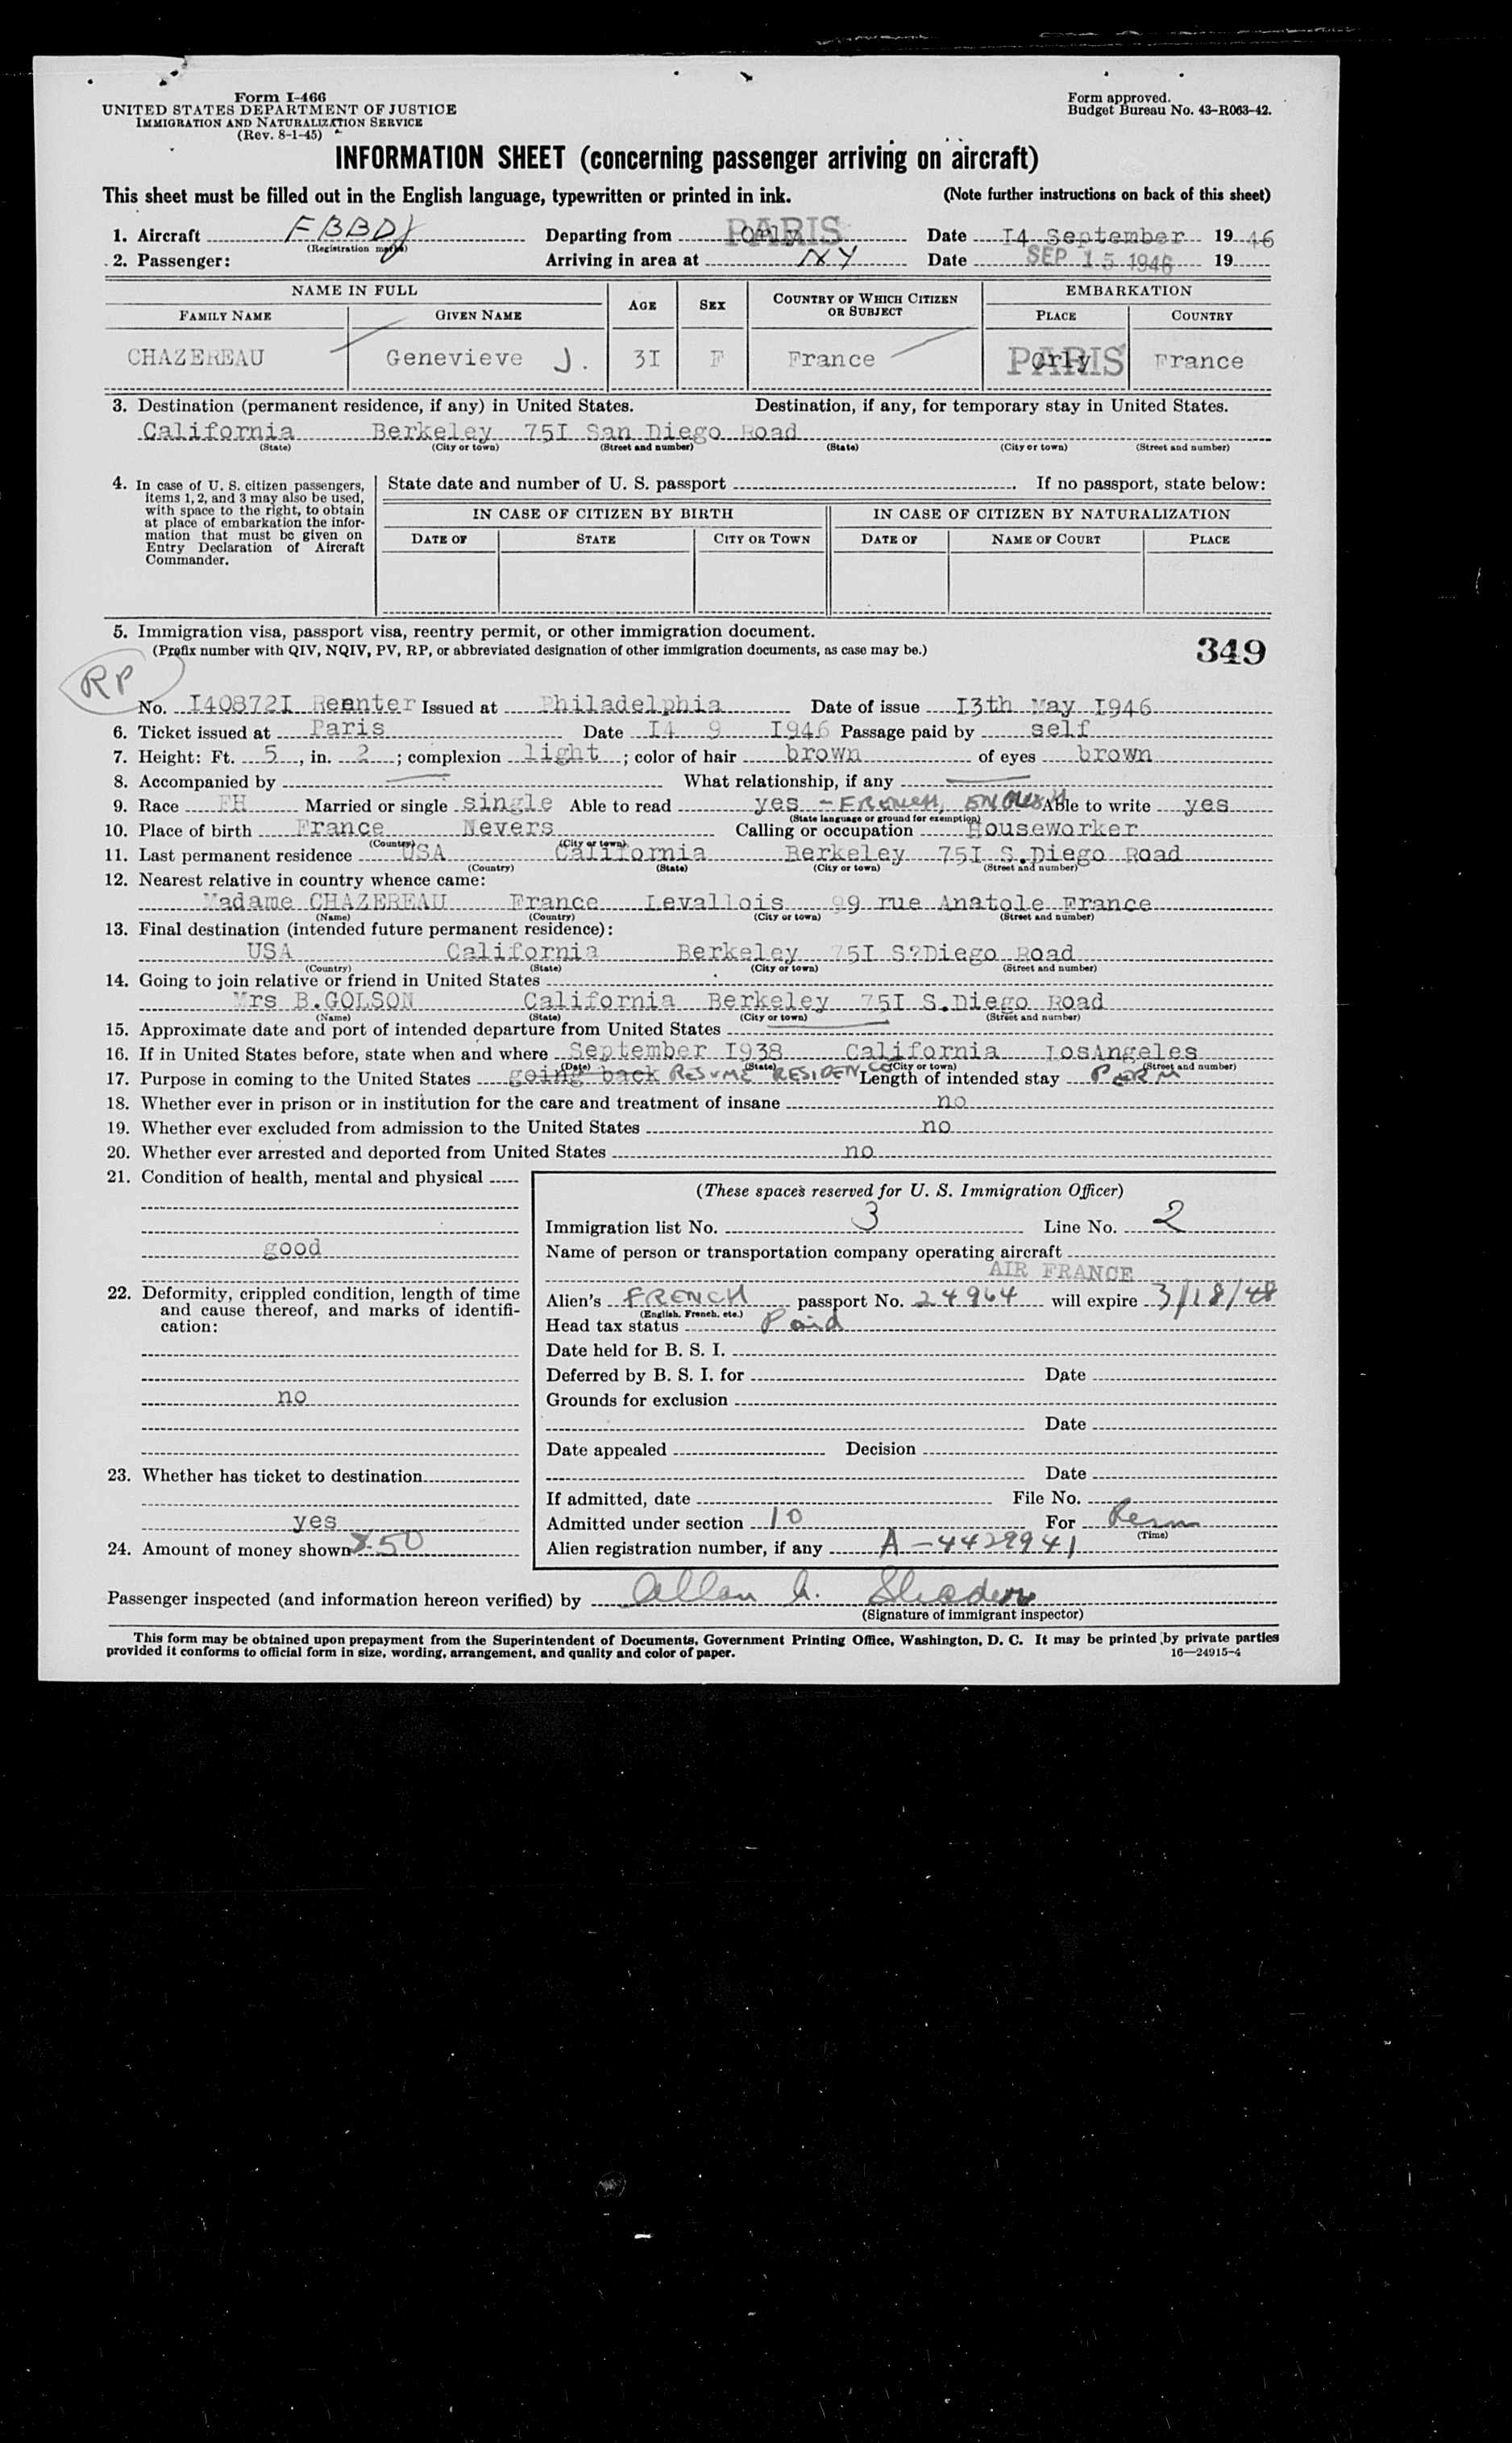 Form I-466
UNITED STATES DEPARTMENT OF JUSTICE
IMMIGRATION AND NATURALIZATION SERVICE
(Rev. 8-1-45)
Form approved.
Budget Bureau No. 43-R063-42.
INFORMATION SHEET (concerning passenger arriving on aircraft)
This sheet must be filled out in the English language, typewritten or printed in ink. (Note further instructions on back of this sheet)
1. Aircraft FBBDJ Departing from Orly PARIS Date I4 September 19 46
(Registration marks)
2. Passenger: Arriving in area at NY Date SEP 15 1946 19
NAME IN FULL AGE SEX COUNTRY OF WHICH CITIZEN OR SUBJECT EMBARKATION
FAMILY NAME GIVEN NAME PLACE COUNTRY
CHAZEREAU Genevieve J. 3I F France Orly PARIS France
3. Destination (permanent residence, if any) in United States. Destination, if any, for temporary stay in United States.
California Berkeley 75I San Diego Road
(State) (City or town) (Street and number) (State) (City or town) (Street and number)
4. In case of U. S. citizen passengers, items 1, 2, and 3 may also be used, with space to the right, to obtain at place of embarkation the information that must be given on Entry Declaration of Aircraft Commander.
State date and number of U. S. passport If no passport, state below:
IN CASE OF CITIZEN BY BIRTH IN CASE OF CITIZEN BY NATURALIZATION
DATE OF STATE CITY OR TOWN DATE OF NAME OF COURT PLACE
5. Immigration visa, passport visa, reentry permit, or other immigration document.
(Prefix number with QIV, NQIV, PV, RP, or abbreviated designation of other immigration documents, as case may be.)
349
RP
No. I40872I Reenter Issued at Philadelphia Date of issue I3th May I946
6. Ticket issued at Paris Date I4 9 I946 Passage paid by self
7. Height: Ft. 5, in. 2; complexion light; color of hair brown of eyes brown
8. Accompanied by What relationship, if any
9. Race FH Married or single single Able to read yes - FRENCH, ENGLISH Able to write yes
(State language or ground for exemption)
10. Place of birth France Nevers Calling or occupation Houseworker
(Country) (City or town)
11. Last permanent residence USA California Berkeley 75I S.Diego Road
(Country) (State) (City or town) (Street and number)
12. Nearest relative in country whence came:
Madame CHAZEREAU France Levallois 99 rue Anatole France
(Name) (Country) (City or town) (Street and number)
13. Final destination (intended future permanent residence):
USA California Berkeley 75I S?Diego Road
(Country) (State) (City or town) (Street and number)
14. Going to join relative or friend in United States
Mrs B.GOLSON California Berkeley 75I S.Diego Road
(Name) (State) (City or town) (Street and number)
15. Approximate date and port of intended departure from United States
16. If in United States before, state when and where September I938 California LosAngeles
(Date) (State) (City or town) (Street and number)
17. Purpose in coming to the United States going back RESUME RESIDENCE Length of intended stay PERM
18. Whether ever in prison or in institution for the care and treatment of insane no
19. Whether ever excluded from admission to the United States no
20. Whether ever arrested and deported from United States no
21. Condition of health, mental and physical
good
22. Deformity, crippled condition, length of time and cause thereof, and marks of identification:
no
23. Whether has ticket to destination
yes
24. Amount of money shown $50
(These spaces reserved for U. S. Immigration Officer)
Immigration list No. 3 Line No. 2
Name of person or transportation company operating aircraft
AIR FRANCE
Alien's FRENCH passport No. 24964 will expire 3/18/48
(English, French, etc.)
Head tax status Paid
Date held for B. S. I.
Deferred by B. S. I. for Date
Grounds for exclusion
Date
Date appealed Decision
Date
If admitted, date File No.
Admitted under section 10 For Perm
(Time)
Alien registration number, if any A-4429941
Passenger inspected (and information hereon verified) by Allan
(Signature of immigrant inspector)
This form may be obtained upon prepayment from the Superintendent of Documents, Government Printing Office, Washington, D. C. It may be printed by private parties
provided it conforms to official form in size, wording, arrangement, and quality and color of paper. 16—24915-4